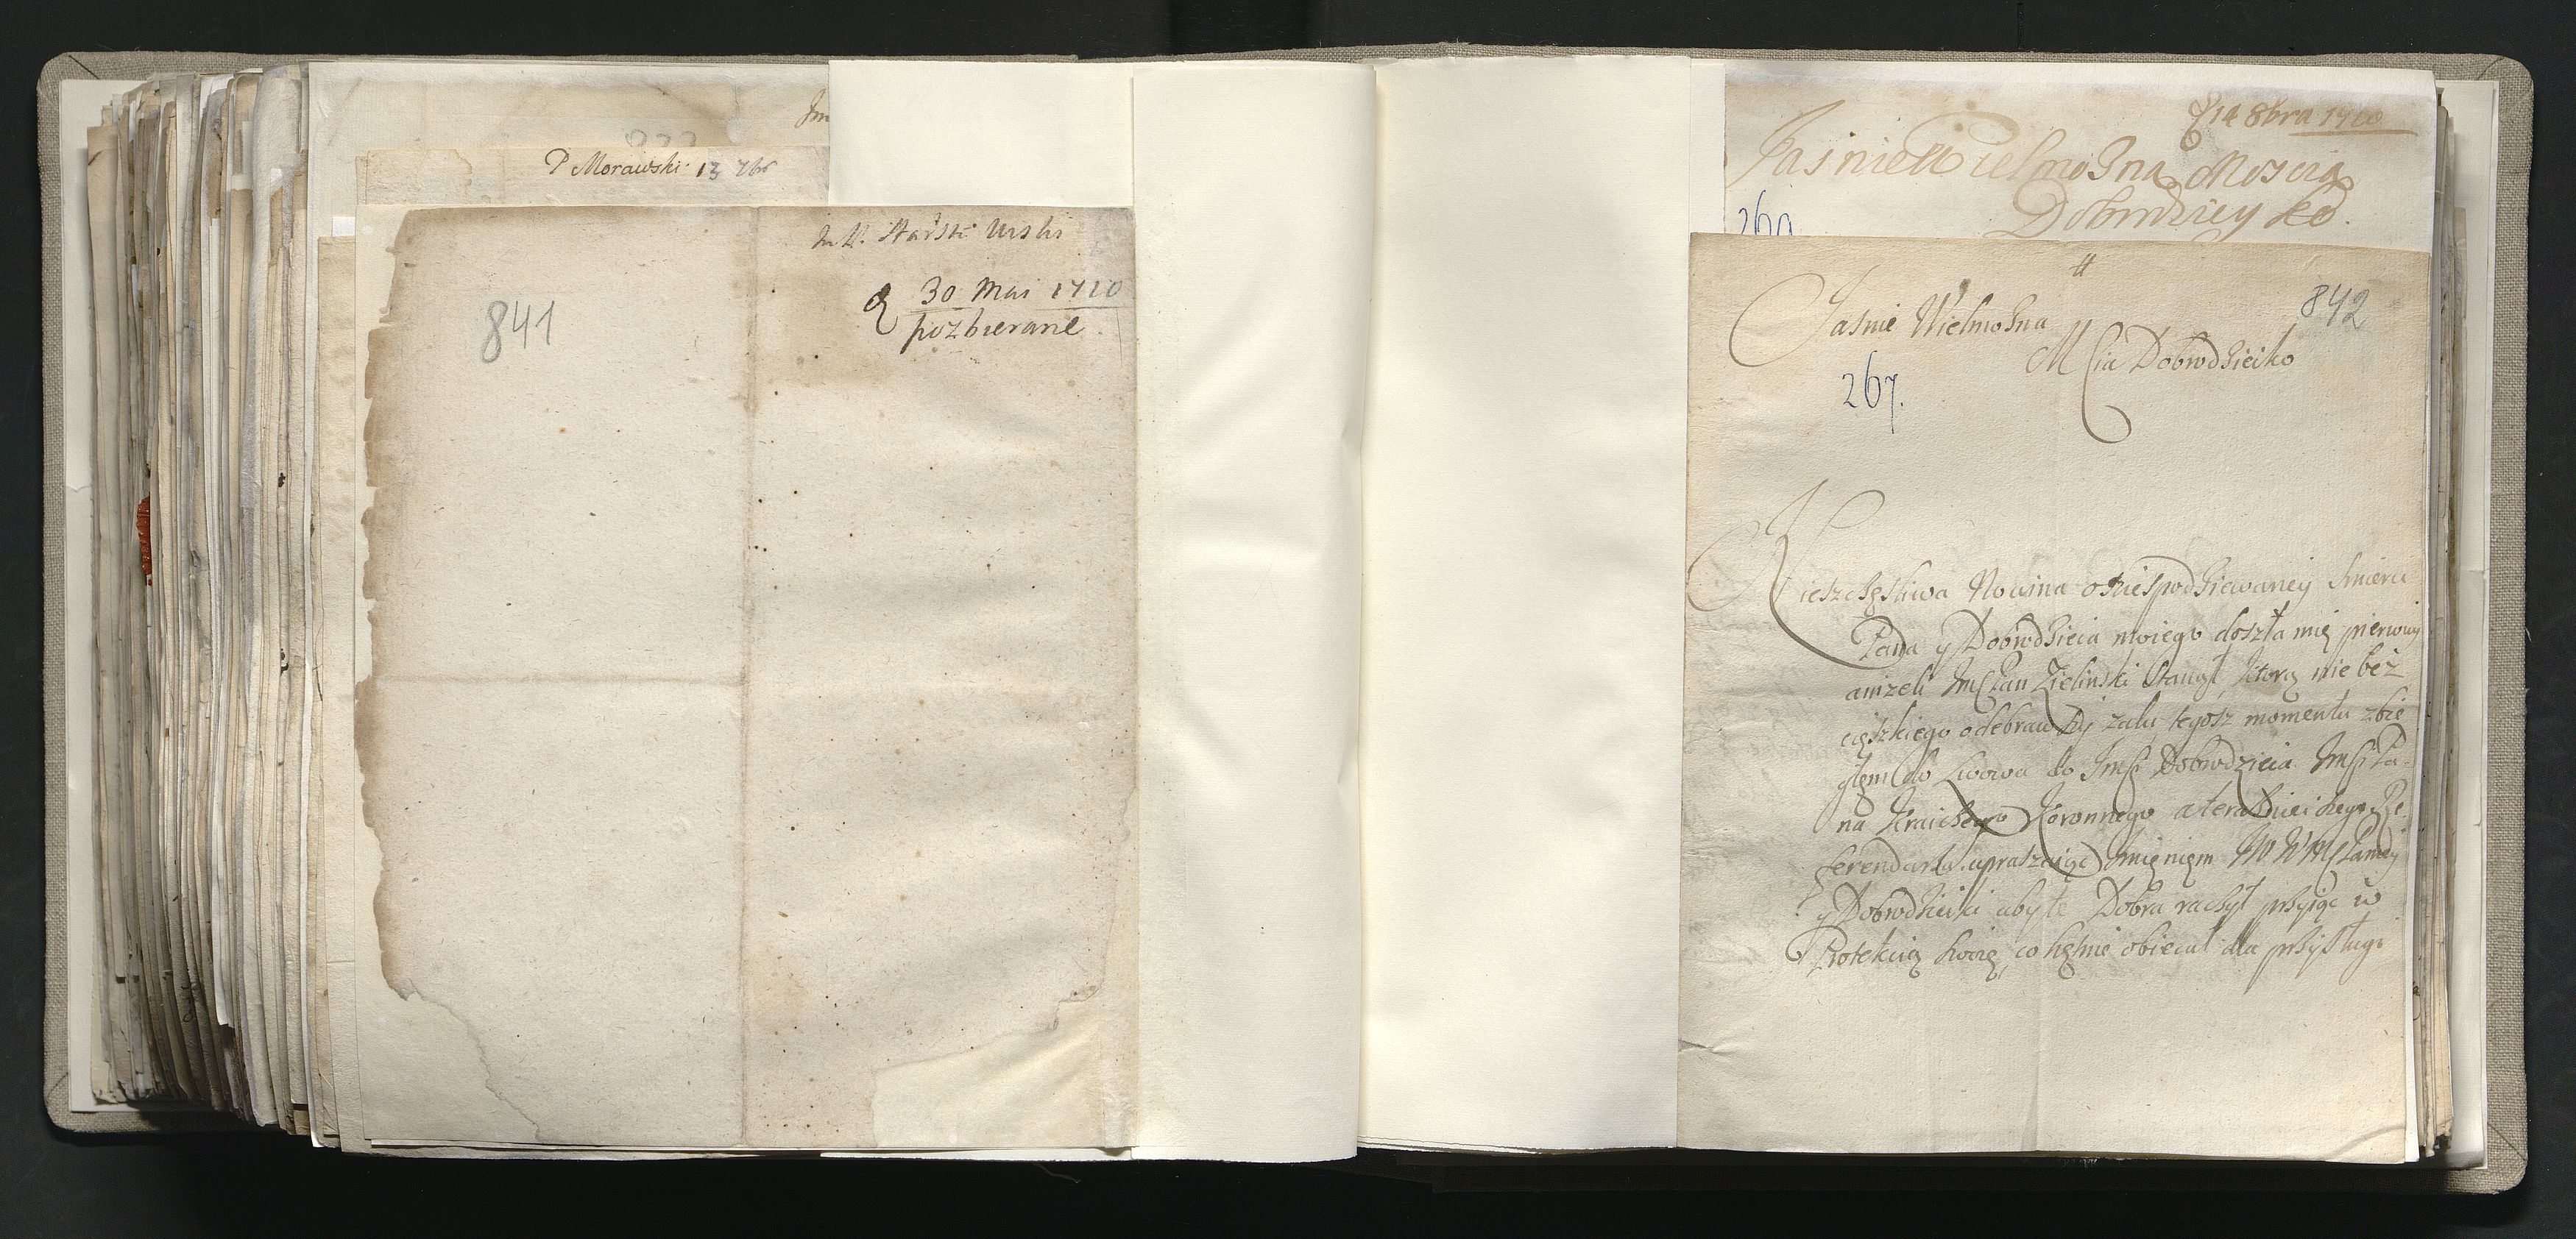 P Morawski 13 7br
841
30 Mai 1710
pozbierane
14 8bra 1710
Jasnie Wielmożna Moscia
Dobrodziey ko.
260
842
Jasnie Wielmożna
MCia Dobrodzieiko
267.
Nieszczęsliwa Nowina o niespodziewaney smierci
Pana y Dobrodzieia moiego doszła mię pierwiey
anizeli JmCPan Zielinski stanął, ktorą nie bez
cięszkiego odebrawszy zalu, tegosz momentu zbie
głem do Lwowa do JmCi Dobrodzieia JmCi Pa-
na Kraiczego Koronnego a teraznieiszego Re
ferendarza, upraszaiąc imieniem WWMCPaniey
y Dobrodzieiki aby te Dobra raczył przyiąc w
Protekcią swoię, co chętnie obiecał dla przysługi